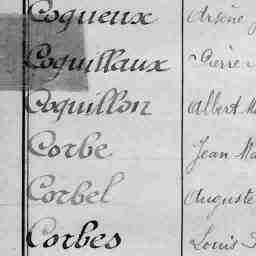 Coqueux Arsène
Coquillaux Pierre
Coquillon Albert
Corbe Jean
Corbel Auguste
Corbes Louis